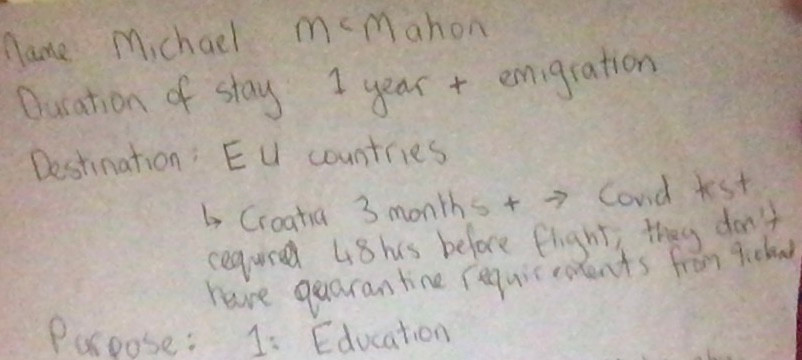 Name Michael McMahon
Duration of stay 1 year + emigration
Destination: EU countries
↳ Croatia 3 months + → Covid test
required 48hrs before flight, they don't
have quarantine requirements from Ireland
Purpose: 1: Education